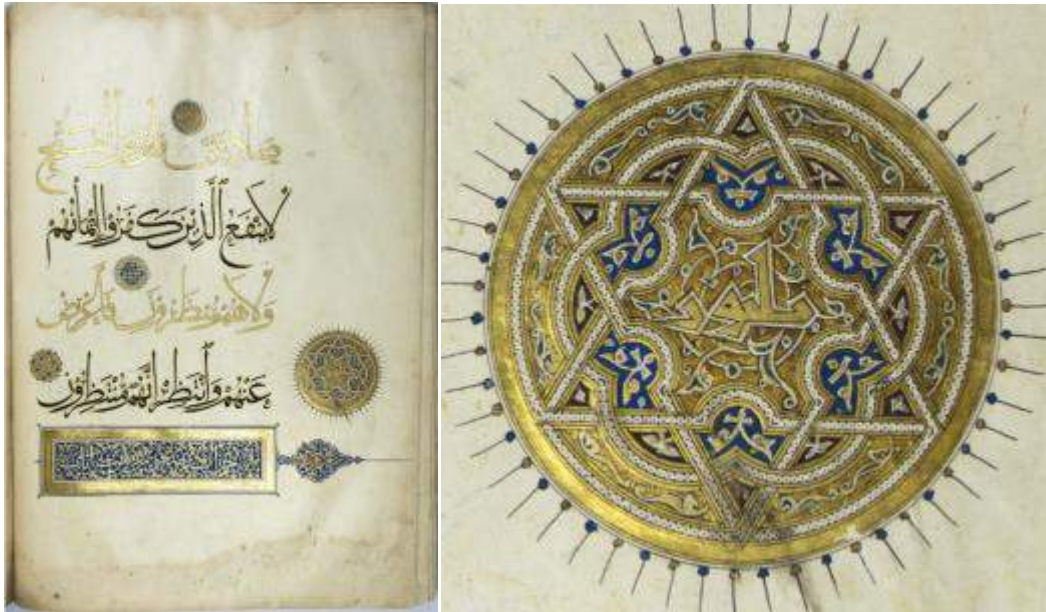 صادقين قل يوم الفتح
لَا يَنْفَعُ الَّذِينَ كَفَرُوا إِيمَانُهُمْ
وَلَا هُمْ يُنظَرُونَ فَأَعْرِضْ
عَنْهُمْ وَانْتَظِرْ إِنَّهُمْ مُنْتَظِرُونَ